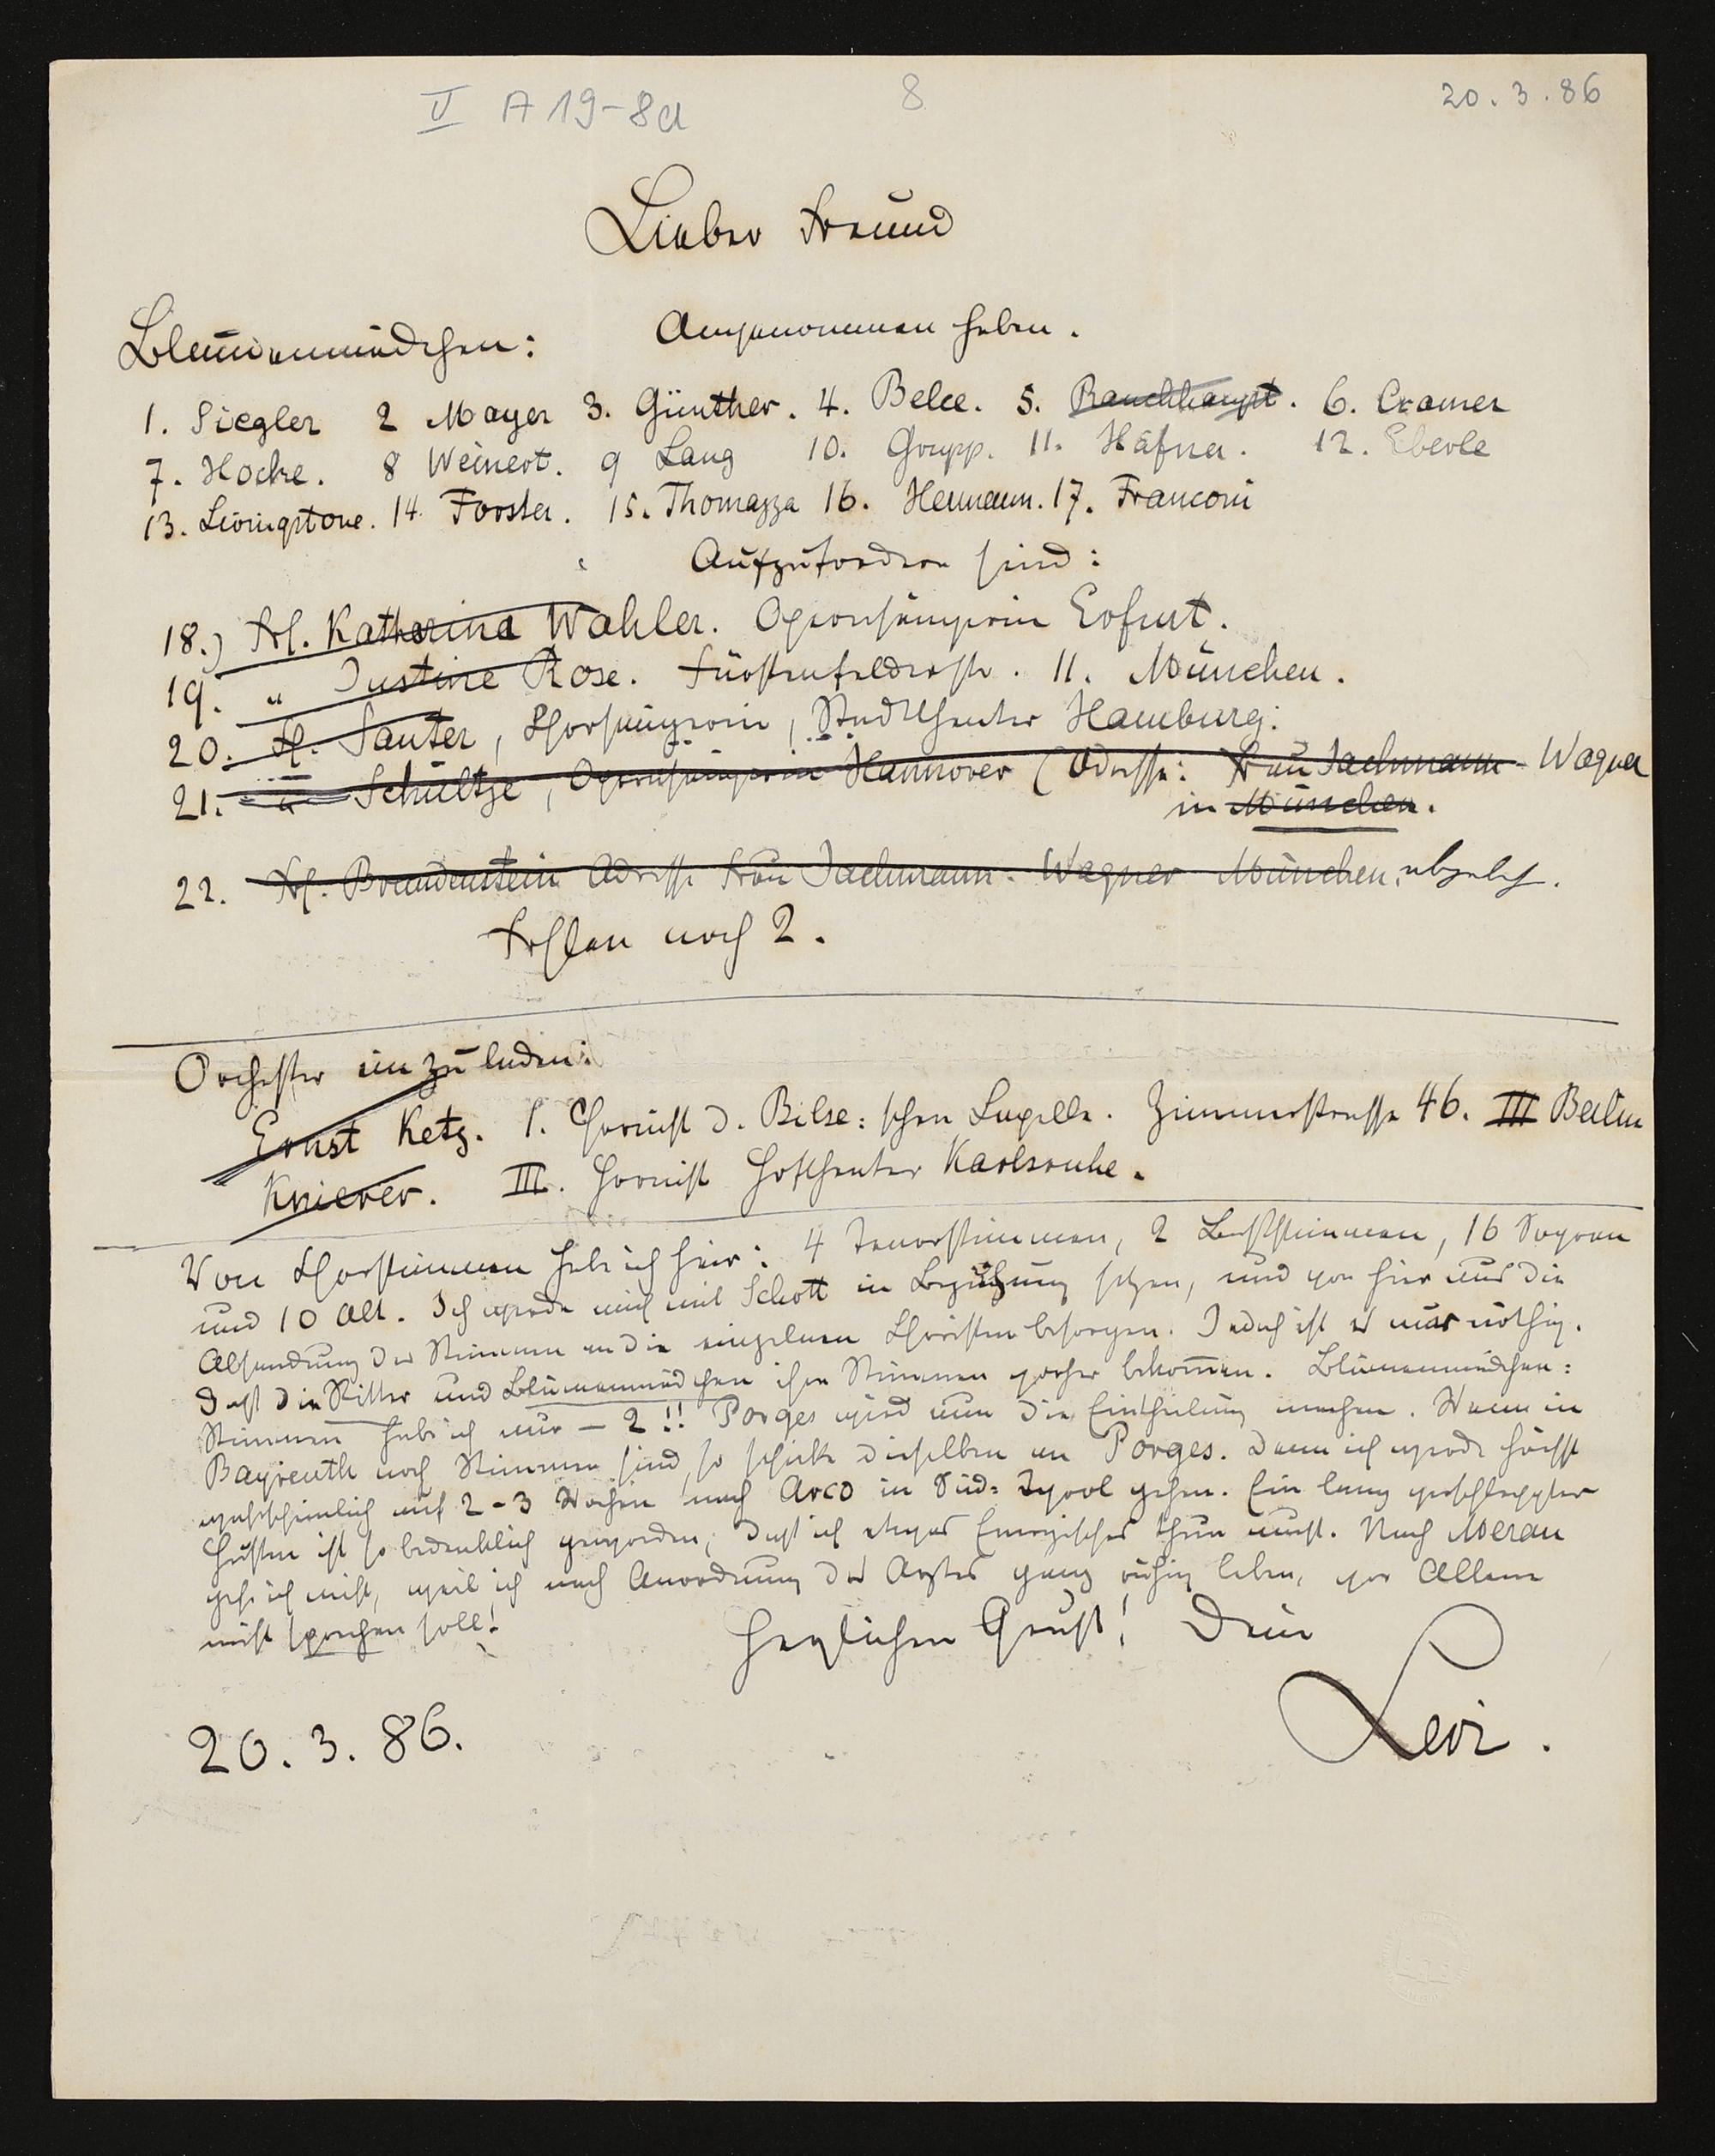 V A 19-8a
8
20.3.86
Lieber Freund
Blumenmädchen: Angenommen haben.
1. Siegler 2 Mayer 3. Günther. 4. Belce. 5. Rauchhaupt. 6. Cramer
7. Hocke. 8 Weinert. 9 Lang 10. Grupp. 11. Häfner. 12. Eberle
13. Livingstone. 14. Forster. 15. Thomazza 16. Hermann. 17. Franconi
Aufzufordern sind:
18.) Frl. Katharina Wahler. Opernsängerin Erfurt.
19. " Justine Rose. Fürstenfelderstr. 11. München.
20. Frl. Sauter, Chorsängerin, Stadttheater Hamburg.
21. " Schultze, Opernsängerin Hannover (Adresse: Frau Jachmann-Wagner
in München.
22. Frl. Brandenstein Adresse Frau Jachmann-Wagner München, abgelehnt.
Fehlen noch 2.
Orchester einzuladen:
Ernst Ketz. 1. Hornist d. Bilse:schen Capelle. Zimmerstrasse 46. III Berlin
Knierer. III. Hornist Hoftheater Karlsruhe.
Von Chorstimmen habe ich hier: 4 Tenorstimmen, 2 Bassstimmen, 16 Sopran
und 10 Alt. Ich werde mich mit Schott in Beziehung setzen, und von hier aus die
Absendung der Stimmen an die einzelnen Choristen besorgen. Jedoch ist es nur nöthig,
daß die Ritter und Blumenmädchen ihre Stimmen vorher bekommen. Blumenmädchen:
Stimmen habe ich nur – 2!! Porges wird nun die Eintheilung machen. Wenn in
Bayreuth noch Stimmen sind, so schicke dieselben an Porges. Denn ich werde höchst
wahrscheinlich auf 2-3 Wochen nach Arco in Süd-Tyrol gehen. Ein lang verschleppter
Husten ist so bedenklich geworden, daß ich etwas Energisches thun muß. Nach Meran
gehe ich nicht, weil ich nach Anordnung des Arztes ganz ruhig leben, vor Allem
nicht sprechen soll!
Herzlichen Gruß! Dein
Levi.
20.3.86.